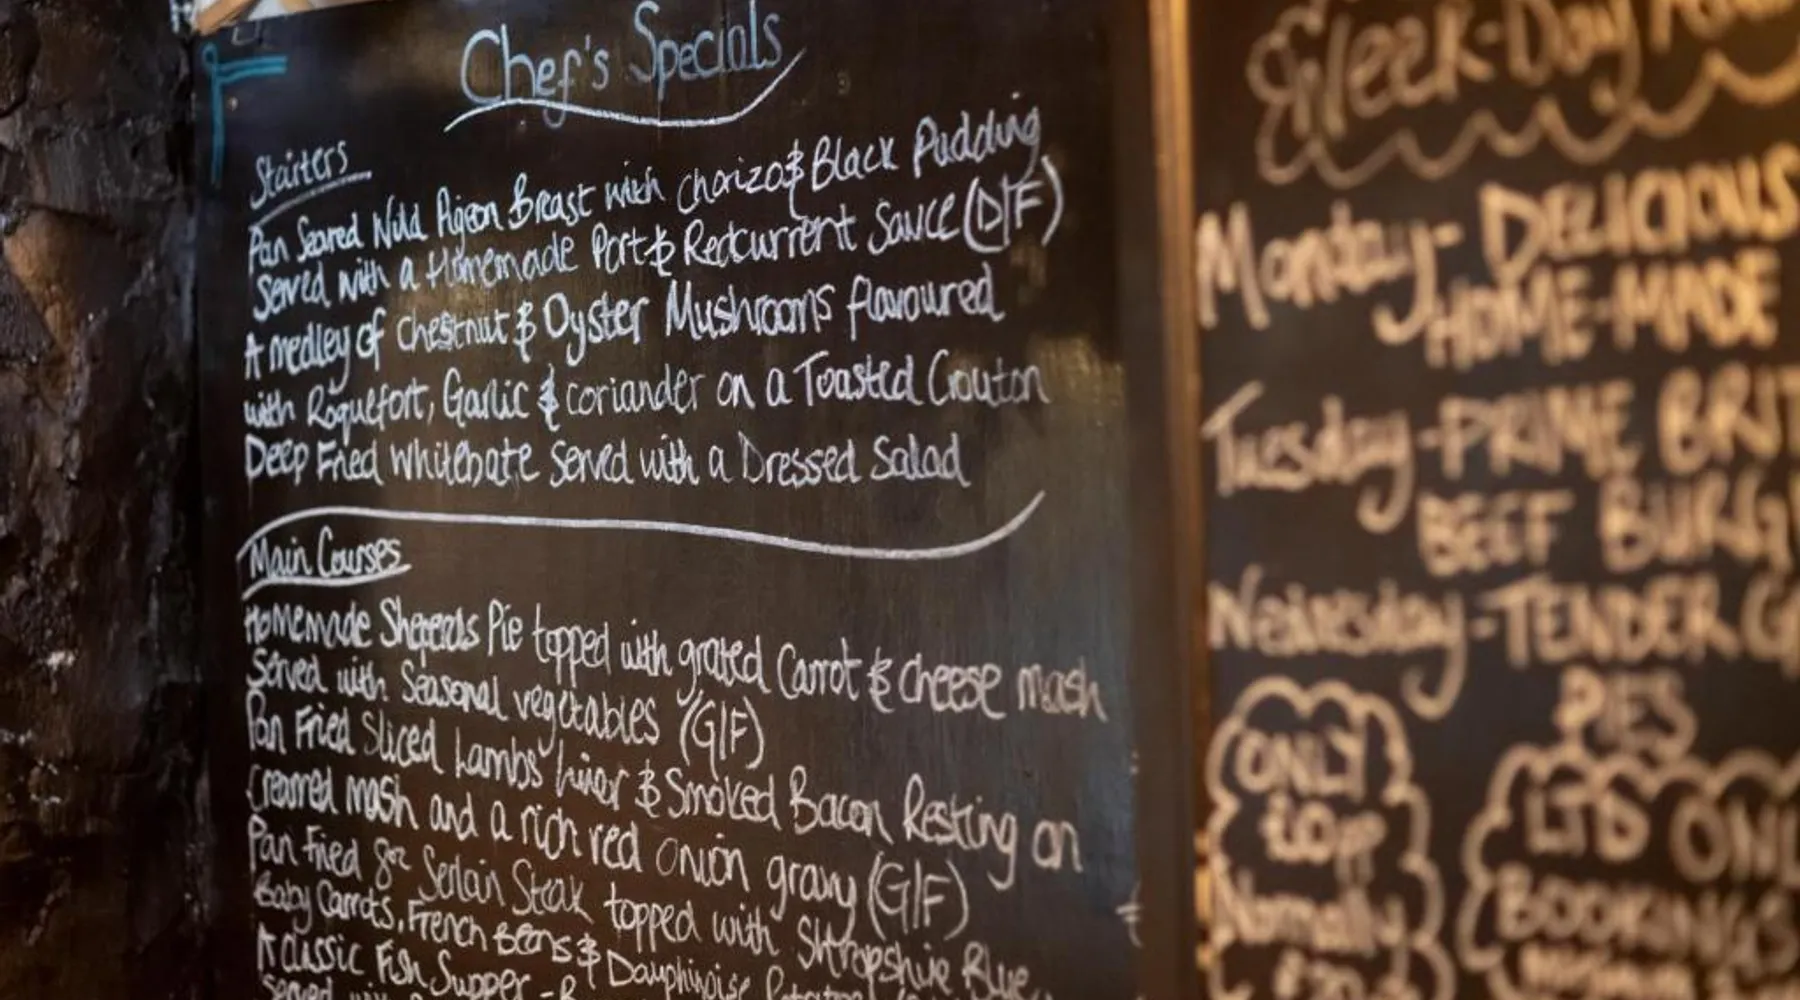 Chef's Specials
Starters
Pan Seared Wild Pigeon Breast with Chorizo & Black Pudding
Served with a Homemade Port & Redcurrent Sauce (D/F)
A medley of Chestnut & Oyster Mushrooms flavoured
with Roquefort, Garlic & coriander on a Toasted Crouton
Deep Fried Whitebate Served with a Dressed Salad
Main Courses
Homemade Sheperds Pie topped with grated Carrot & cheese mash
Served with Seasonal vegetables (G/F)
Pan Fried Sliced Lambs' liver & Smoked Bacon Resting on
creamed mash and a rich red onion gravy (G/F)
Pan fried 8oz Serlain Steak topped with Shropshire Blue
Baby Carrots, French Beans & Dauphinoise
A classic Fish Supper -
Served
Week-Day
Monday - DELICIOUS
HOME-MADE
Tuesday - PRIME BRIT
BEEF BURG
Wednesday - TENDER
PIES
ONLY
Normally
LTD ONL
BOOKINGS